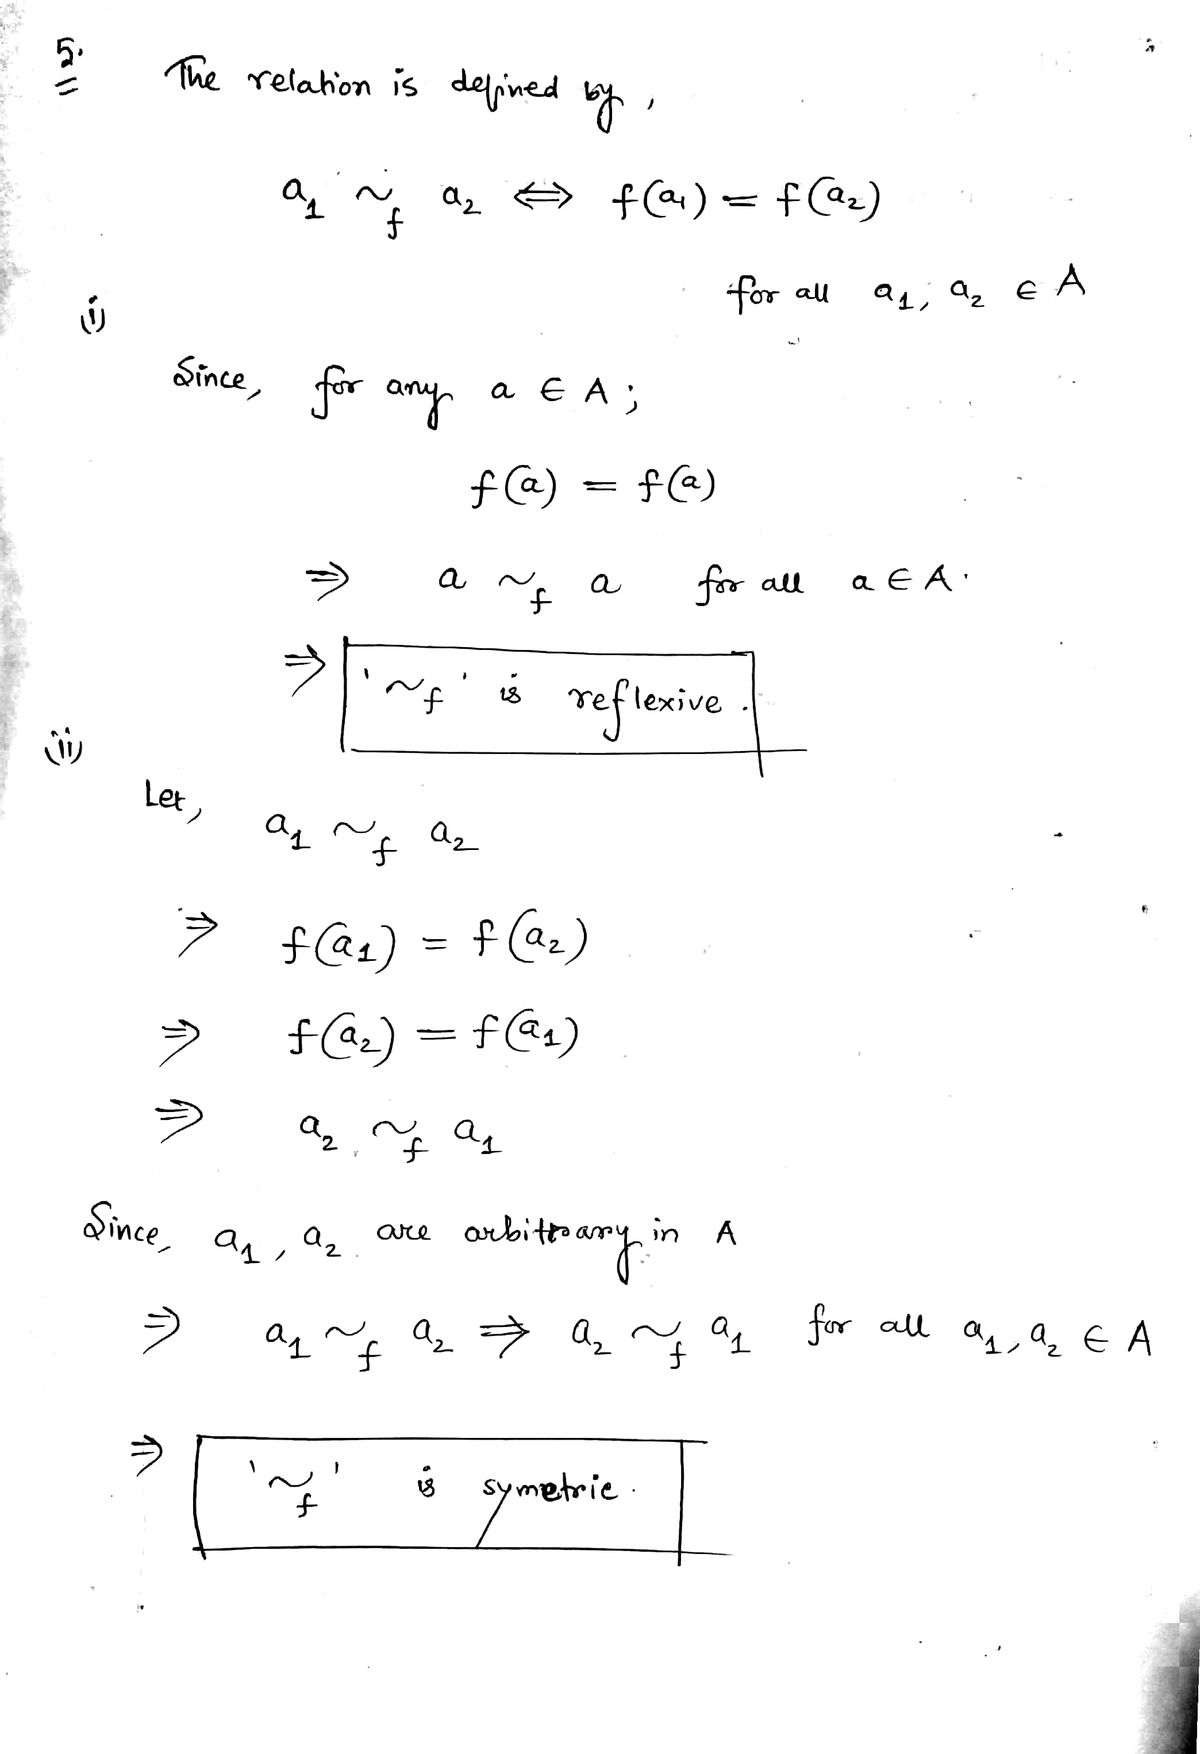 5.
The relation is defined by,
a₁ ~f a₂ ⇔ f(a₁) = f(a₂)
for all a₁, a₂ ∈ A
(i)
Since, for any a ∈ A;
f(a) = f(a)
⇒ a ~f a for all a ∈ A.
⇒ '~f' is reflexive.
(ii)
Let, a₁ ~f a₂
⇒ f(a₁) = f(a₂)
⇒ f(a₂) = f(a₁)
⇒ a₂ ~f a₁
Since, a₁, a₂ are arbitrary in A
⇒ a₁ ~f a₂ ⇒ a₂ ~f a₁ for all a₁, a₂ ∈ A
⇒ '~f' is symetric.